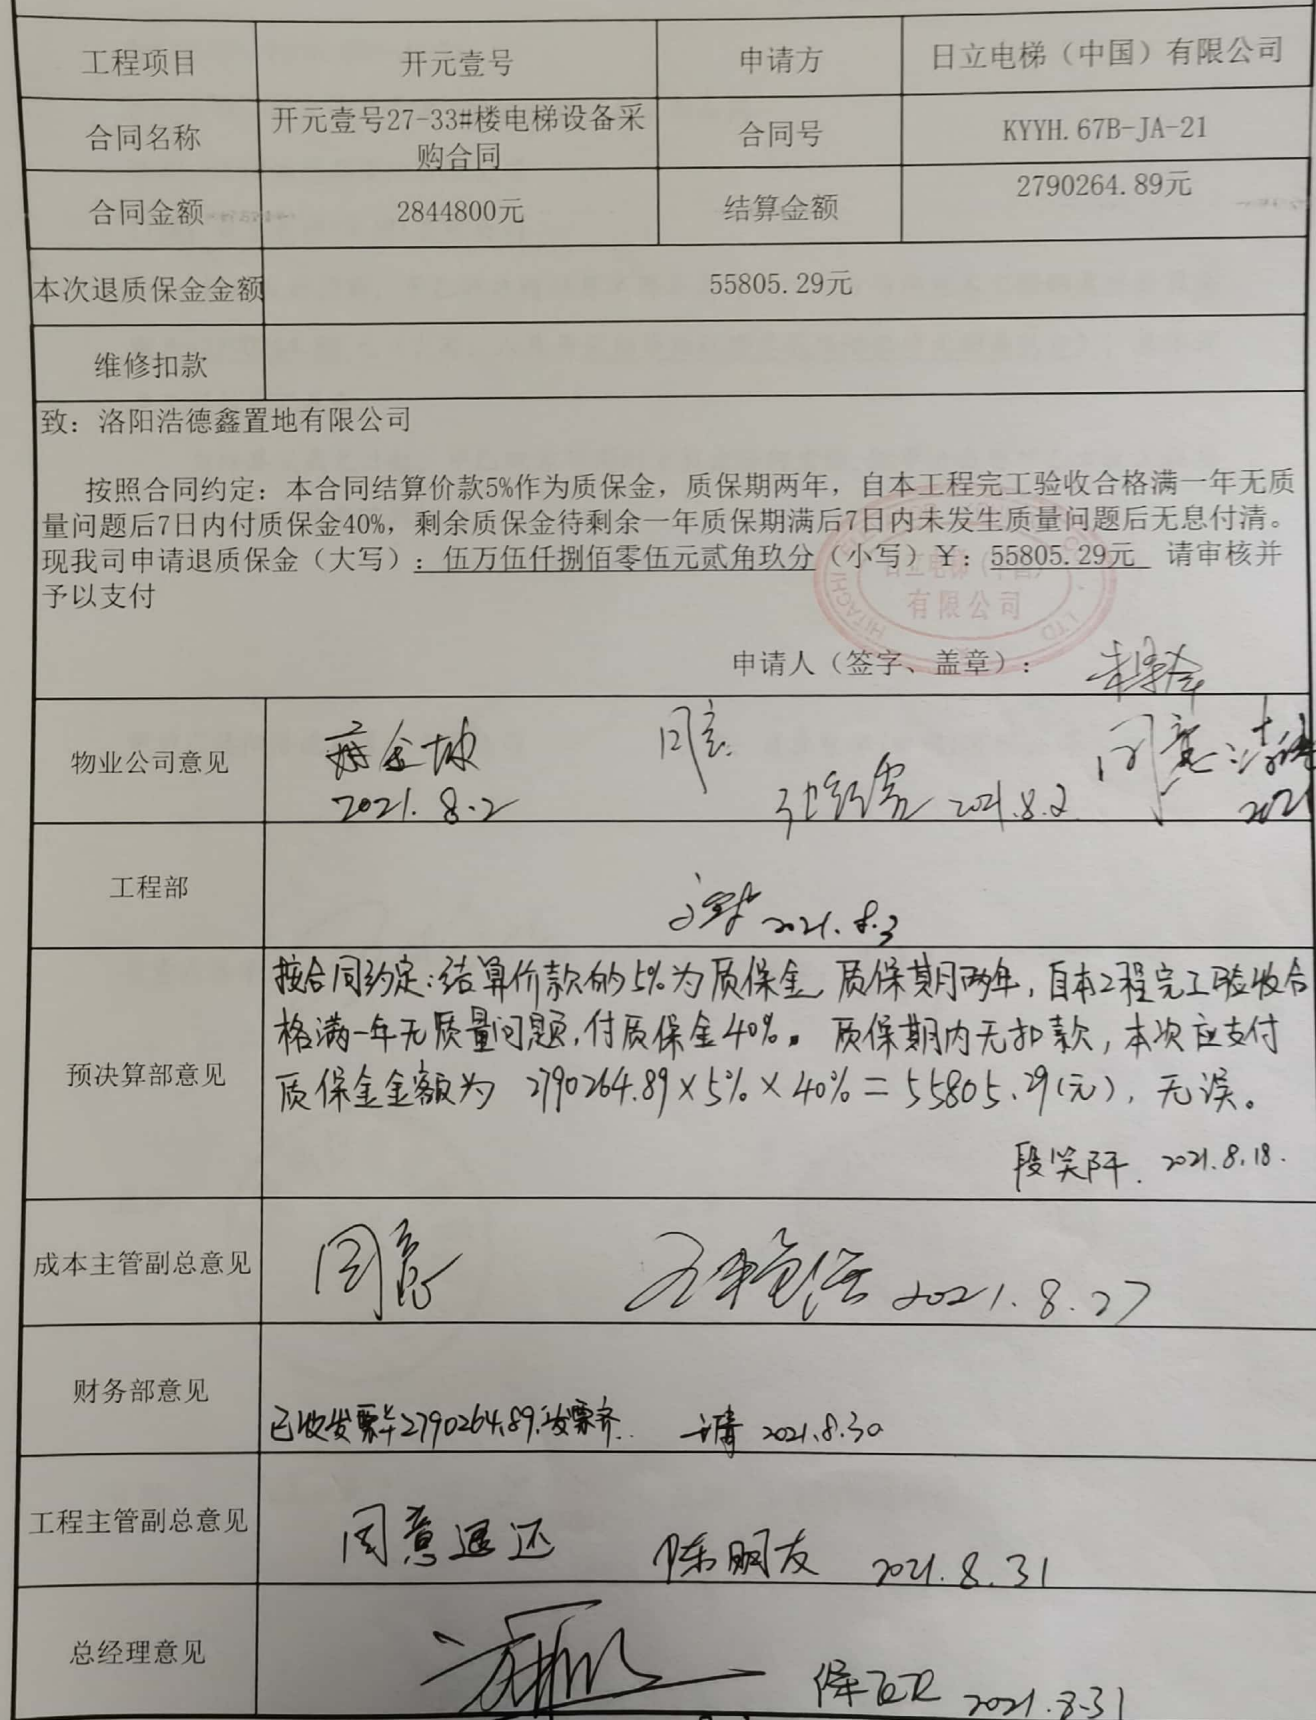 工程项目 开元壹号 申请方 日立电梯（中国）有限公司
合同名称 开元壹号27-33#楼电梯设备采购合同 合同号 KYYH.67B-JA-21
合同金额 2844800元 结算金额 2790264.89元
本次退质保金金额 55805.29元
维修扣款
致：洛阳浩德鑫置地有限公司
按照合同约定：本合同结算价款5%作为质保金，质保期两年，自本工程完工验收合格满一年无质
量问题后7日内付质保金40%，剩余质保金待剩余一年质保期满后7日内未发生质量问题后无息付清。
现我司申请退质保金（大写）：伍万伍仟捌佰零伍元贰角玖分（小写）￥：55805.29元 请审核并
予以支付
日立电梯（中国）
有限公司
申请人（签字、盖章）：
物业公司意见 同意 同意
2021.8.2 2021.8.2 2021
工程部 2021.8.3
按合同约定:结算价款的5%为质保金,质保期两年,自本工程完工验收合
格满一年无质量问题,付质保金40%。质保期内无扣款,本次应支付
预决算部意见 质保金金额为 2790264.89×5%×40%=55805.29(元),无误。
段笑阡. 2021.8.18.
成本主管副总意见 同意 2021.8.27
财务部意见 已收发票¥2790264.89.发票齐. 2021.8.30
工程主管副总意见 同意退还 陈朋友 2021.8.31
总经理意见 2021.8.31